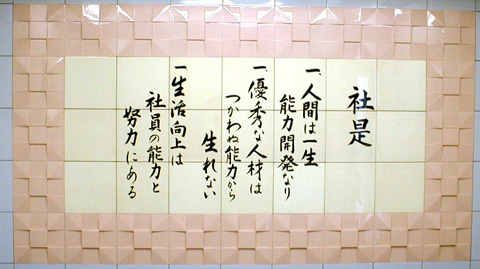 社是
一、人間は一生
能力開発なり
一、優秀な人材は
つかわぬ能力から
生れない
一生活向上は
社員の能力と
努力にある